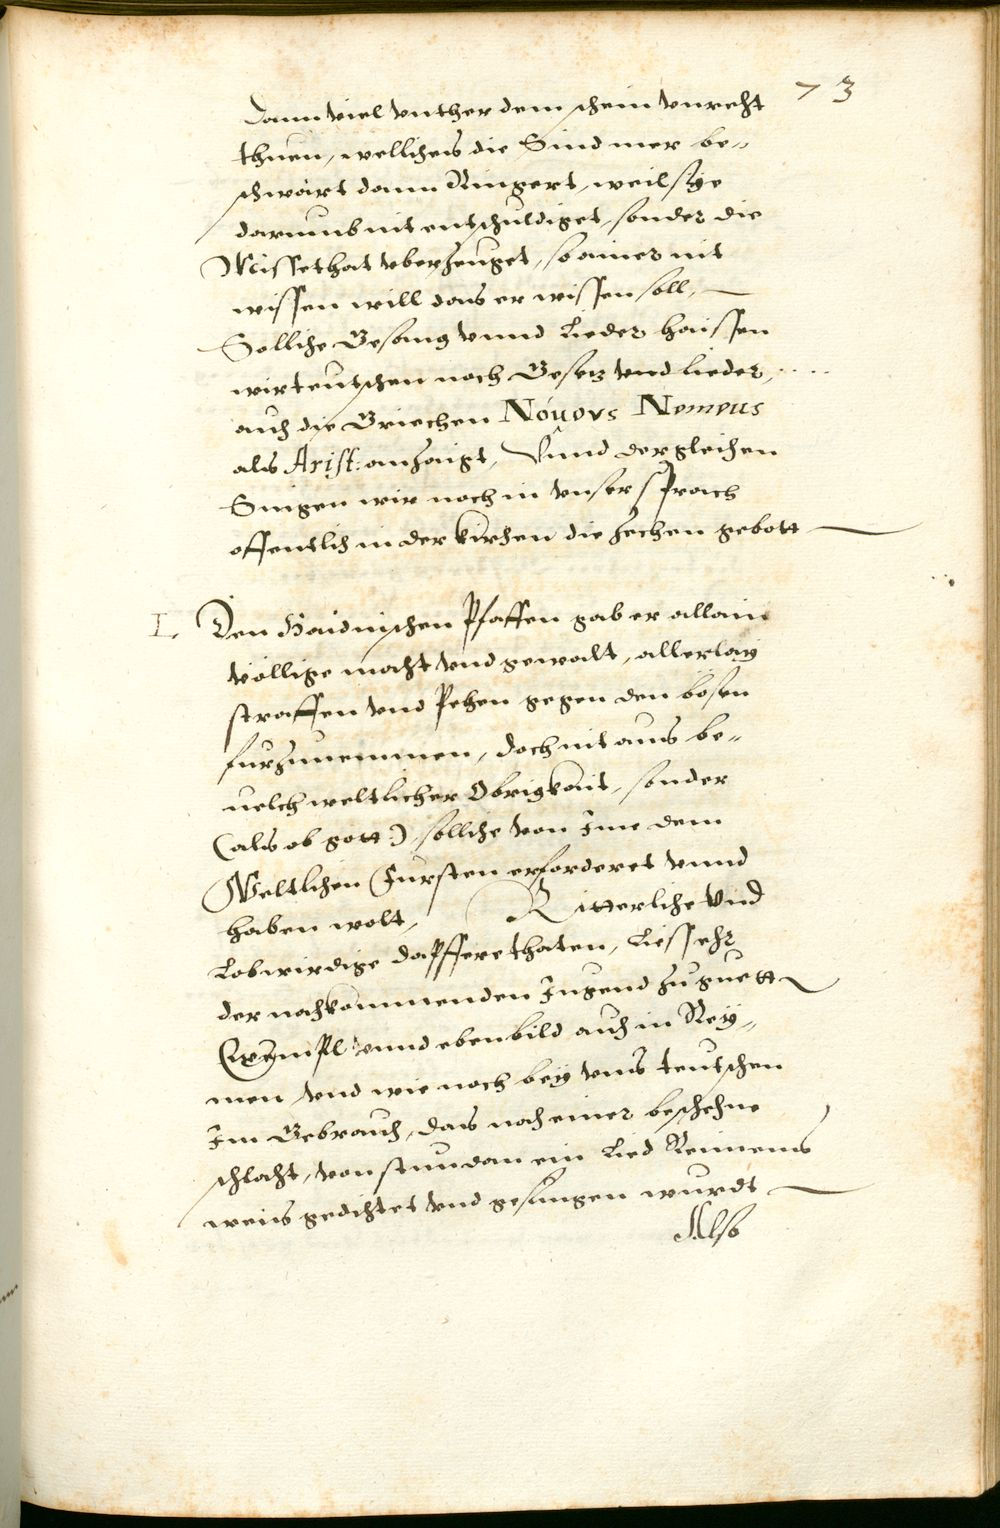 73
Dann viel vnther dem schein vnrecht
thuen, wellichens die Sind mer be-
schwärt dann Ringert, weil sye
darumb nit entschuldiget, sonder die
Missethat vberzeuget, so ainer nit
wissen will das er wissen soll,
Solliche Gesang vnnd Lieder haissen
wir teutschen noch Gesetz vnd lieder,
auch die Griechen Nóuovs Nomous
als Arist: anzaigt, Vnnd dergleichen
Singen wir noch in vnser sprach
offentlich in der kirchen die zechen gebott
I. Den Haidnischen Pfaffen gab er allain
völlige macht vnd gewalt, allerlay
straffen vnd Pehen gegen den bösen
furzunemmen, doch nit aus be-
uelch weltlicher Obrigkait, sonder
(als ob gott) solliche von Ime dem
Weltlichen Fursten erforderet vnnd
haben wolt, Ritterliche vnd
Lobwirdige dapffere thaten, Liess ehr
der nachkommenden Jugend zu guett
Exempl vnnd ebenbild auch in Rey-
men, vnd wie noch bey vnns teutschen
Im Gebrauch, das nach einer beschehne
schlacht, von stundan ein Lied Reimens
weis gedichtet vnd gesungen wurdt
Also